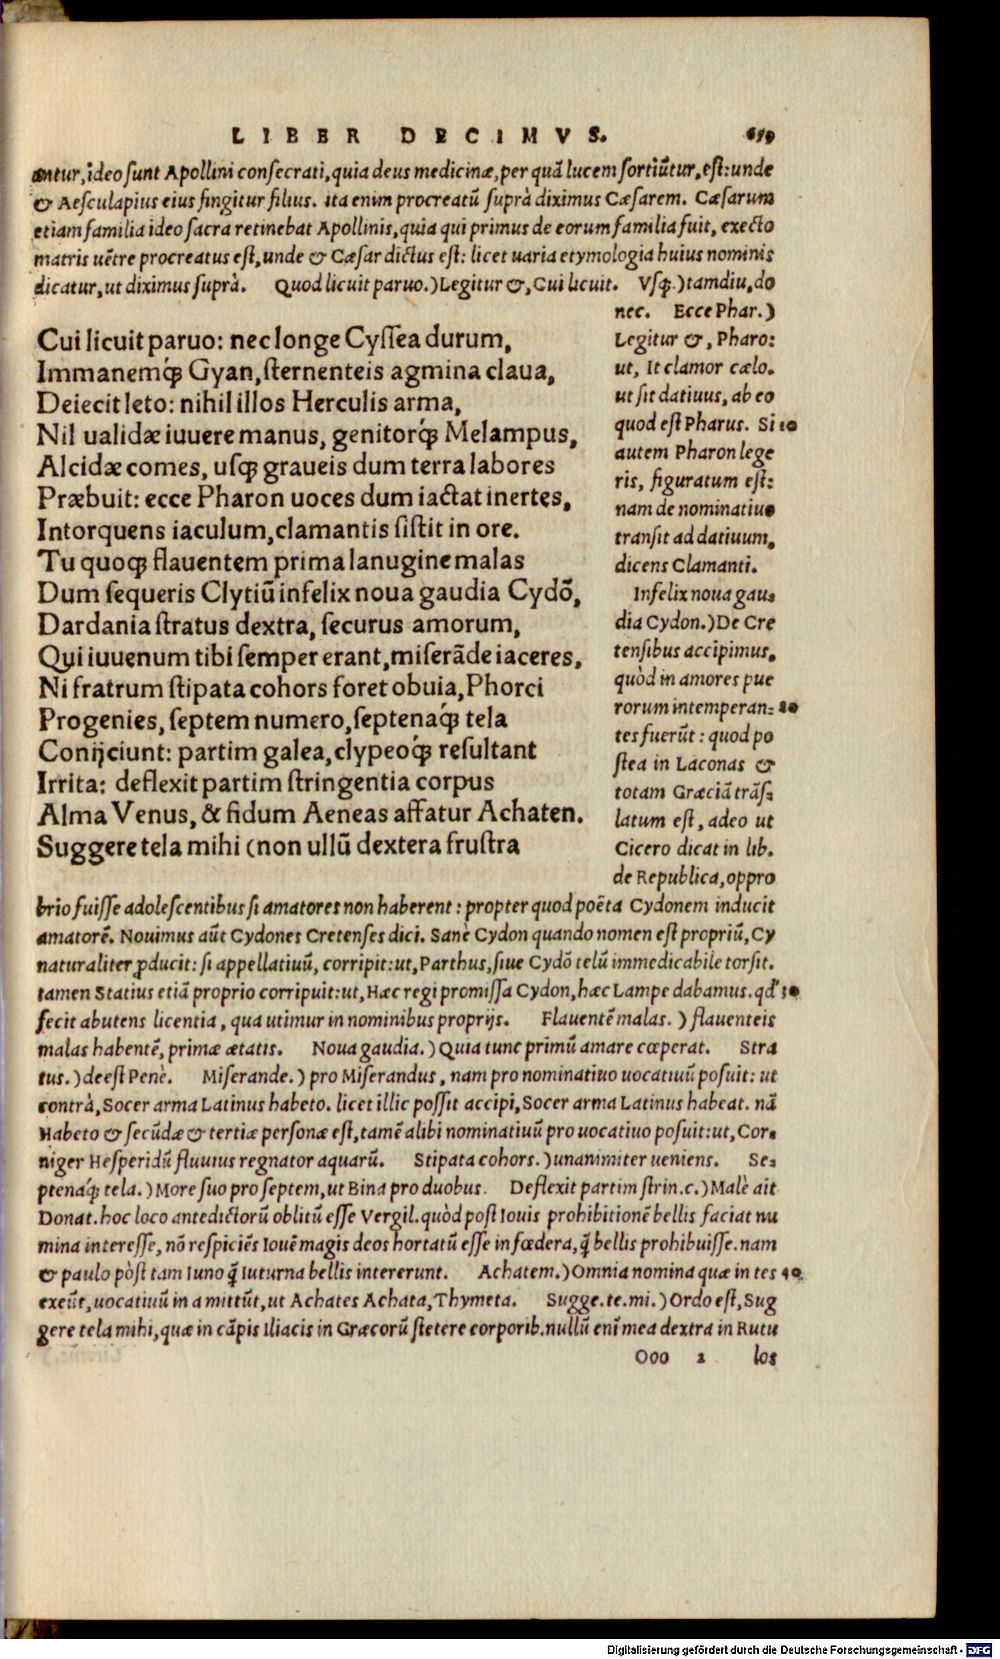 LIBER DECIMVS. 659
antur, ideo sunt Apollini consecrati, quia deus medicinæ, per quã lucem sortiũtur, est: unde
& Aesculapius eius fingitur filius. ita enim procreatũ suprà diximus Cæsarem. Cæsarum
etiam familia ideo sacra retinebat Apollinis, quia qui primus de eorum familia fuit, execto
matris uẽtre procreatus est, unde & Cæsar dictus est: licet uaria etymologia huius nominis
dicatur, ut diximus suprà. Quod licuit paruo.) Legitur &, Cui licuit. Vsq;.) tamdiu, do
nec. Ecce Phar.)
Legitur &, Pharo:
ut, It clamor cælo.
ut sit datiuus, ab eo
quod est Pharus. Si 10
autem Pharon lege
ris, figuratum est:
nam de nominatiuo
transit ad datiuum,
dicens Clamanti.
Infelix noua gau-
dia Cydon.) De Cre
tensibus accipimus,
quòd in amores pue
rorum intemperan- 20
tes fuerũt: quod po
stea in Laconas &
totam Græciã trãs-
latum est, adeo ut
Cicero dicat in lib.
de Republica, oppro
Cui licuit paruo: nec longe Cysſea durum,
Immanemq́; Gyan, sternenteis agmina claua,
Deiecit leto: nihil illos Herculis arma,
Nil ualidæ iuuere manus, genitorq́; Melampus,
Alcidæ comes, usq; graueis dum terra labores
Præbuit: ecce Pharon uoces dum iactat inertes,
Intorquens iaculum, clamantis sistit in ore.
Tu quoq; flauentem prima lanugine malas
Dum sequeris Clytiũ infelix noua gaudia Cydõ,
Dardania stratus dextra, securus amorum,
Qui iuuenum tibi semper erant, miserãde iaceres,
Ni fratrum stipata cohors foret obuia, Phorci
Progenies, septem numero, septenaq́; tela
Conijciunt: partim galea, clypeoq́; resultant
Irrita: deflexit partim stringentia corpus
Alma Venus, & fidum Aeneas affatur Achaten.
Suggere tela mihi (non ullũ dextera frustra
brio fuisse adolescentibus si amatores non haberent: propter quod poëta Cydonem inducit
amatorẽ. Nouimus aũt Cydones Cretenses dici. Sanè Cydon quando nomen est propriũ, Cy
naturaliter ꝓducit: si appellatiuũ, corripit: ut, Parthus, siue Cydõ telũ immedicabile torsit.
tamen Statius etiã proprio corripuit: ut, Hæc regi promissa Cydon, hæc Lampe dabamus. qđ 30
fecit abutens licentia, qua utimur in nominibus proprijs. Flauentẽ malas.) flauenteis
malas habentẽ, primæ ætatis. Noua gaudia.) Quia tunc primũ amare cœperat. Stra
tus.) deest Penè. Miserande.) pro Miserandus, nam pro nominatiuo uocatiuũ posuit: ut
contrà, Socer arma Latinus habeto. licet illic possit accipi, Socer arma Latinus habeat. nã
Habeto & secũdæ & tertiæ personæ est, tamẽ alibi nominatiuũ pro uocatiuo posuit: ut, Cor-
niger Hesperidũ fluuius regnator aquarũ. Stipata cohors.) unanimiter ueniens. Se-
ptenaq́; tela.) More suo pro septem, ut Bina pro duobus. Deflexit partim strin.c.) Malè ait
Donat. hoc loco antedictorũ oblitũ esse Vergil. quòd post Iouis prohibitionẽ bellis faciat nu
mina interesse, nõ respiciẽs Iouẽ magis deos hortatũ esse in fœdera, q̃ bellis prohibuisse. nam
& paulo pòst tam Iuno q̃ Iuturna bellis intererunt. Achatem.) Omnia nomina quæ in tes 40
exeũt, uocatiuũ in a mittũt, ut Achates Achata, Thymeta. Sugge.te.mi.) Ordo est, Sug
gere tela mihi, quæ in cãpis Iliacis in Græcorũ stetere corporib. nullũ enĩ mea dextra in Rutu
Ooo 2 los
Digitalisierung gefördert durch die Deutsche Forschungsgemeinschaft - DFG